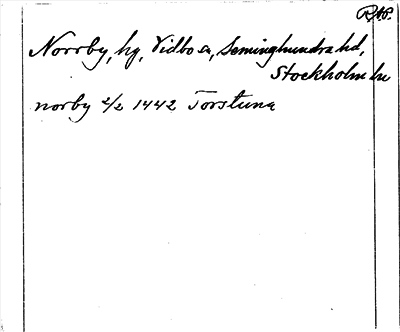 RAP.
Norrby, hg, Vidbo sn, Seminghundra hd,
Stockholms län
norby 2/2 1442 Torstuna